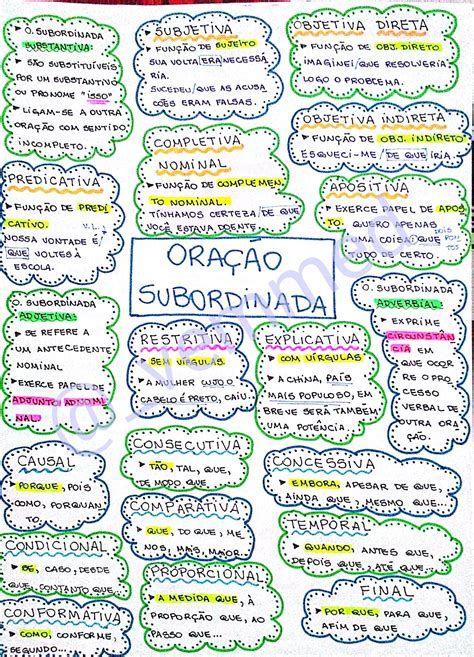 O. SUBORDINADA
SUBSTANTIVA:
▸ SÃO SUBSTITUÍVEIS
POR UM SUBSTANTIVO
OU PRONOME "ISSO"
▸ LIGAM-SE A OUTRA
ORAÇÃO COM SENTIDO
INCOMPLETO.
SUBJETIVA
▸ FUNÇÃO DE SUJEITO
SUA VOLTA/ERA NECESSÁ
RIA.
SUCEDEU/QUE AS ACUSA
ÇÕES ERAM FALSAS.
OBJETIVA DIRETA
▸ FUNÇÃO DE OBJ. DIRETO
IMAGINEI/QUE RESOLVERIA
LOGO O PROBLEMA.
OBJETIVA INDIRETA
▸ FUNÇÃO DE OBJ. INDIRETO
ESQUECI-ME/DE QUE IRIA.
COMPLETIVA
NOMINAL
▸ FUNÇÃO DE COMPLEMEN
TO NOMINAL.
TÍNHAMOS CERTEZA/DE QUE
VOCÊ ESTAVA DOENTE
PREDICATIVA
▸ FUNÇÃO DE PREDI
CATIVO. V.L.
NOSSA VONTADE É/
QUE VOLTES À
ESCOLA.
APOSITIVA
▸ EXERCE PAPEL DE APOS
TO. QUERO APENAS
UMA COISA: QUE
TUDO DE CERTO
DOIS PON
TOS
ORAÇÃO
SUBORDINADA
O. SUBORDINADA
ADJETIVA:
▸ SE REFERE A
UM ANTECEDENTE
NOMINAL
▸ EXERCE PAPEL DE
ADJUNTO ADNOMI
NAL.
RESTRITIVA
▸ SEM VÍRGULAS
▸ A MULHER CUJO O
CABELO É PRETO, CAIU.
EXPLICATIVA
▸ COM VÍRGULAS
▸ A CHINA, PAÍS
MAIS POPULOSO, EM
BREVE SERÁ TAMBÉM
UMA POTÊNCIA.
O. SUBORDINADA
ADVERBIAL:
▸ EXPRIME
CIRCUNSTÂN
CIA EM
QUE OCOR
RE O PRO
CESSO
VERBAL DE
OUTRA ORA
ÇÃO
CAUSAL
▸ PORQUE, POIS
COMO, PORQUAN
TO.
CONSECUTIVA
▸ TÃO, TAL, QUE,
DE MODO QUE
CONCESSIVA
▸ EMBORA, APESAR DE QUE,
AINDA QUE, MESMO QUE...
COMPARATIVA
▸ QUE, DO QUE, ME
NOS, MAIS, MAIOR
TEMPORAL
▸ QUANDO, ANTES QUE,
DEPOIS QUE, ATÉ QUE...
CONDICIONAL
▸ SE, CASO, DESDE
QUE, CONTANTO QUE...
PROPORCIONAL
▸ A MEDIDA QUE, À
PROPORÇÃO QUE, AO
PASSO QUE...
FINAL
▸ POR QUE, PARA QUE,
AFIM DE QUE
CONFORMATIVA
▸ COMO, CONFORME,
SEGUNDO...